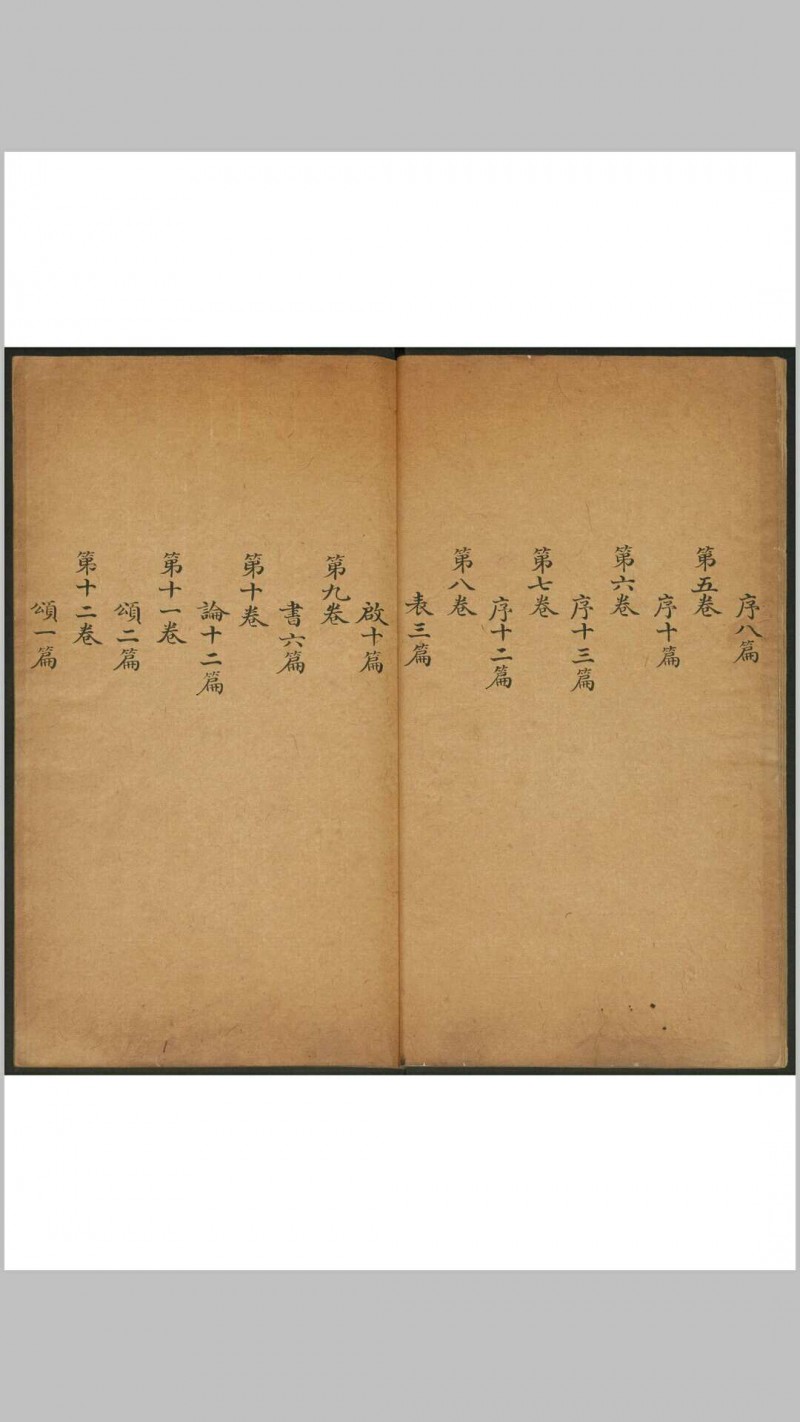 序八篇
第五卷
序十篇
第六卷
序十三篇
第七卷
序十二篇
第八卷
表三篇
啟十篇
第九卷
書六篇
第十卷
論十二篇
第十一卷
頌二篇
第十二卷
頌一篇